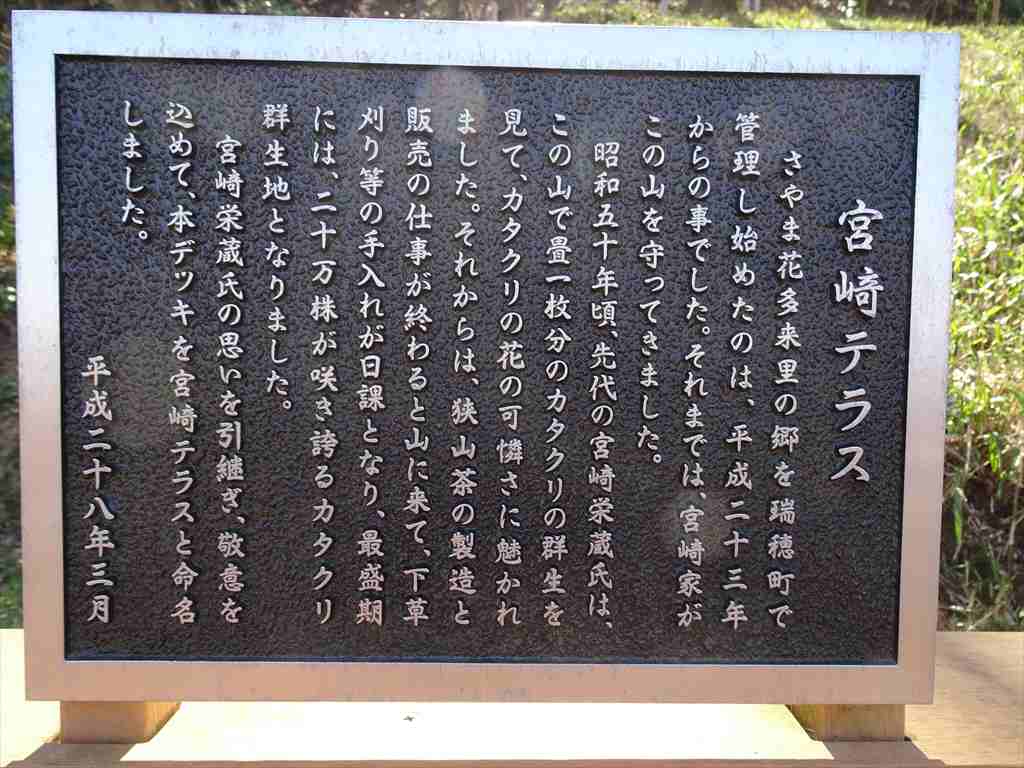 宮﨑テラス
さやま花多来里の郷を瑞穂町で
管理し始めたのは、平成二十三年
からの事でした。それまでは、宮﨑家が
この山を守ってきました。
昭和五十年頃、先代の宮﨑栄蔵氏は、
この山で畳一枚分のカタクリの群生を
見て、カタクリの花の可憐さに魅かれ
ました。それからは、狭山茶の製造と
販売の仕事が終わると山に来て、下草
刈り等の手入れが日課となり、最盛期
には、二十万株が咲き誇るカタクリ
群生地となりました。
宮﨑栄蔵氏の思いを引継ぎ、敬意を
込めて、本デッキを宮﨑テラスと命名
しました。
平成二十八年三月